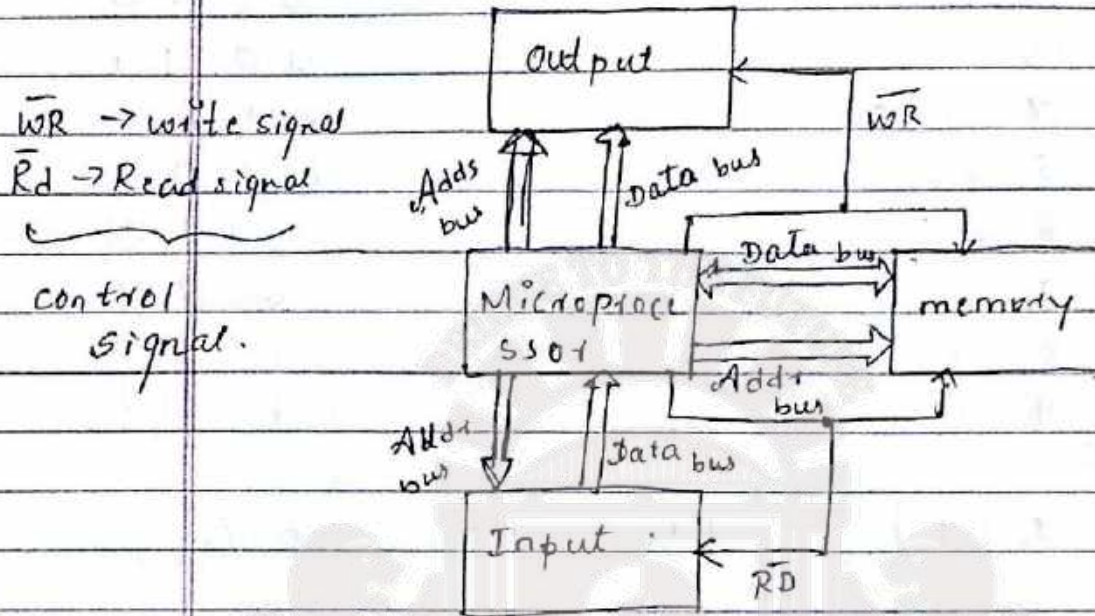 Output
W̅R̅ -> write signal
R̅d -> Read signal
control
signal.
W̅R̅
Adds
bus
Data bus
Data bus
Microproce
ssor
memory
Addr
bus
Addr
bus
Data bus
Input
R̅D̅